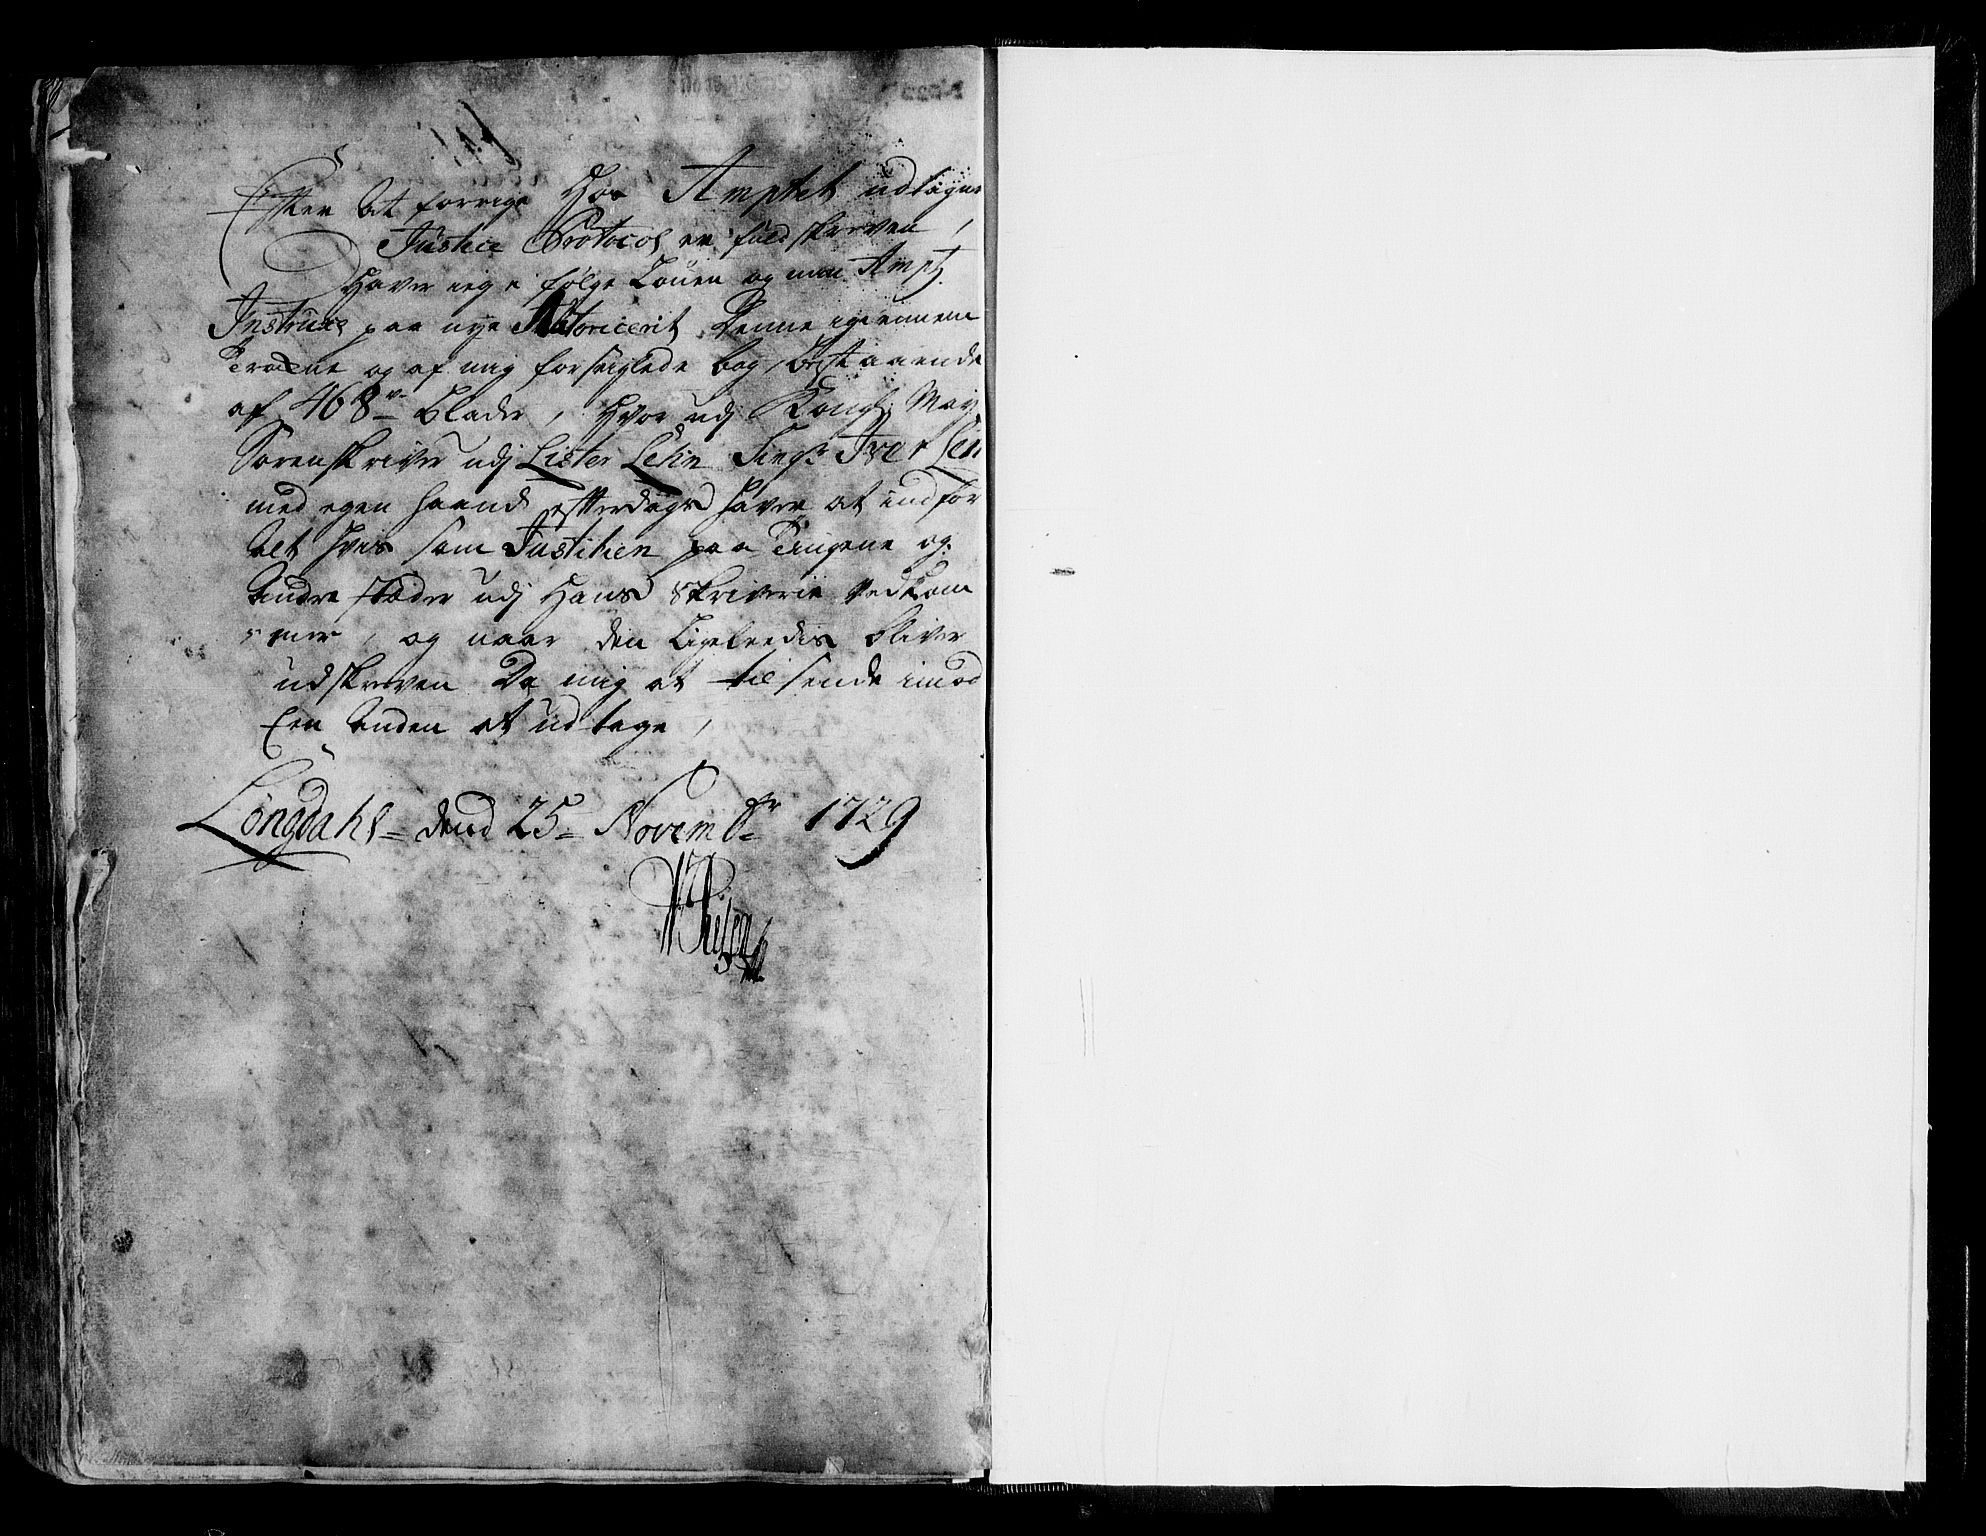 Efter at forrige Hos Amptet udtagne
Justice Protocol er fuldskreven,
Haver ieg i følge Louen og min Ampts
Instrux paa nye Autoricerit Denne igiennem
Tragne og af mig forseiglede bog, bestaaende
af 468 blade, Hvor udj Kongl: May
Sorenskriver udj Lister Lehn Sing Iver
med egen haand effterdags haver at indfør
alt hvis som Justitien paa Tingene og
andre stæder udj Hans Skriverie vedkom
mer, og naar den Ligeleedis bliver
udskreven Da mig at tilsende imod
Een anden at udtage,
Longdahl dend 25 Novembr 1729